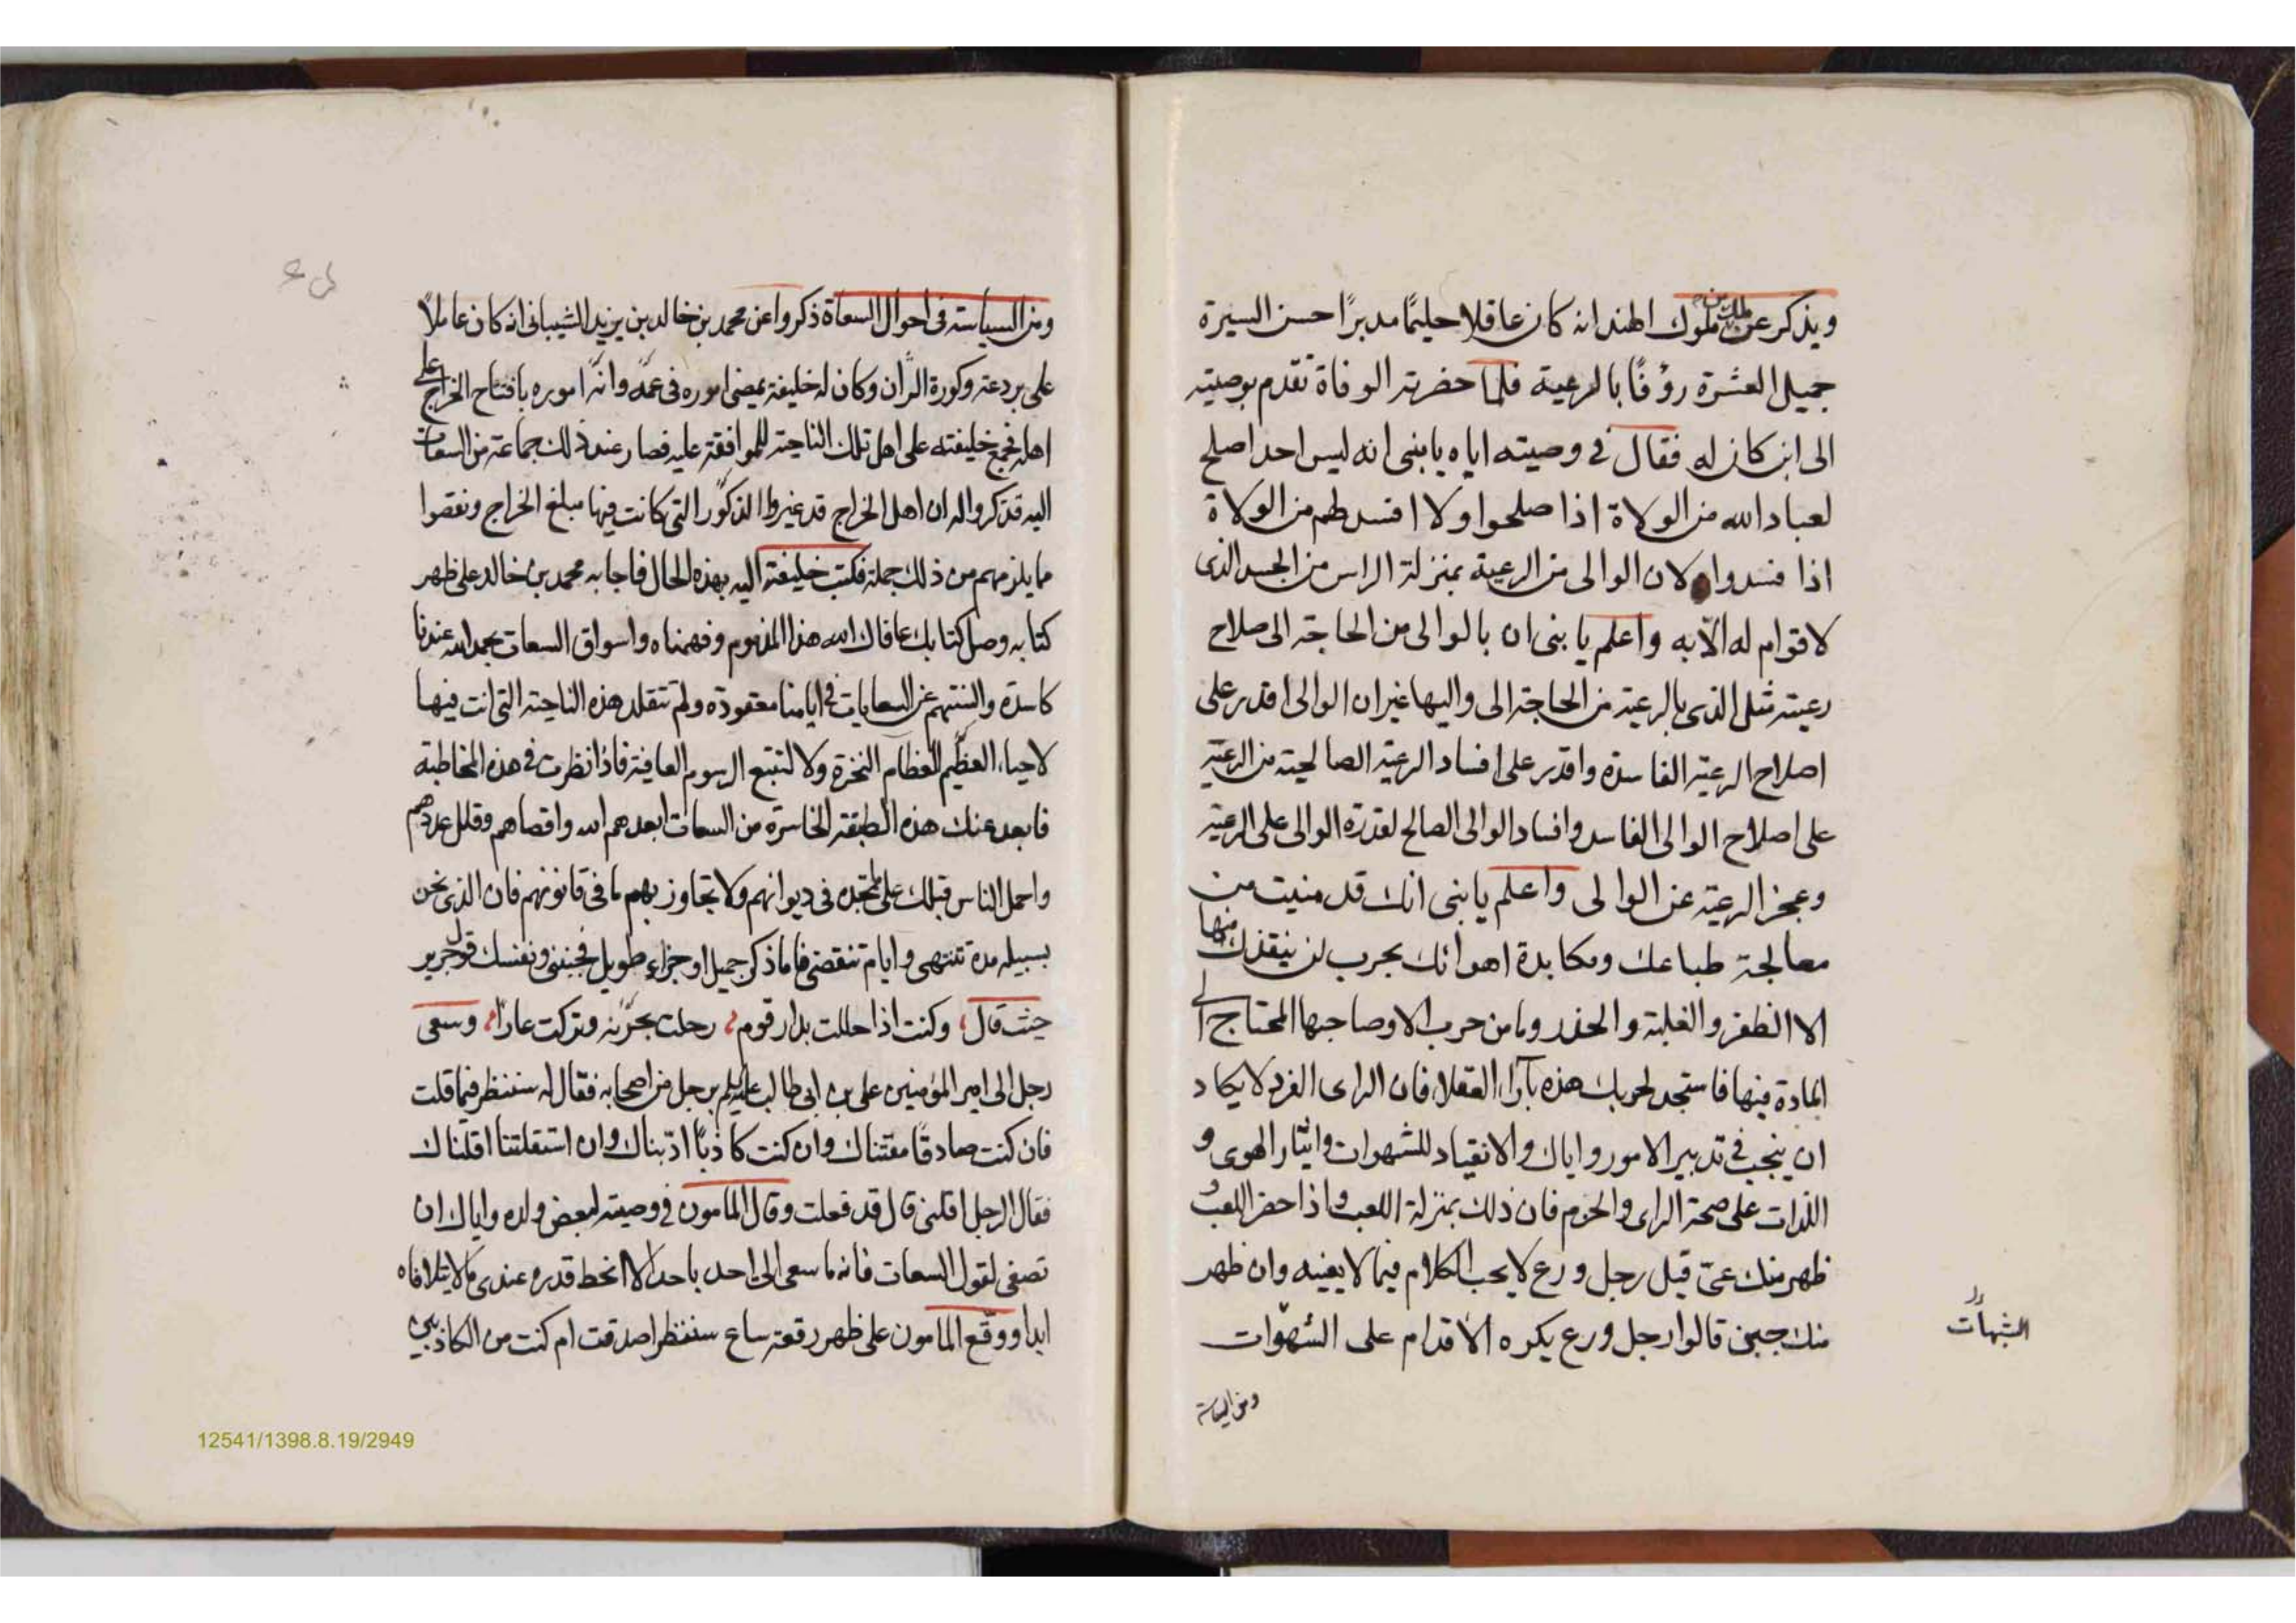 ويذكر عن ملك من ملوك الهند انه كان عاقلا حليمًا مدبرًا حسن السيرة
جميل العشرة رؤفًا بالرعية فلما حضرته الوفاة تقدم بوصيته
الى ابن كان له فقال في وصيته اياه يا بنى انه ليس احد اصلح
لعباد الله من الولاة اذا صلحوا ولا افسد لهم من الولاة
اذا فسدوا ولان الوالى من الرعية بمنزلة الراس من الجسد الذى
لا قوام له الّا به واعلم يا بنى ان بالوالى من الحاجة الى صلاح
رعيته مثل الذى بالرعية من الحاجة الى واليها غير ان الوالى اقدر على
اصلاح الرعية الفاسدة واقدر على افساد الرعية الصالحية من الرعية
على اصلاح الوالى الفاسد وافساد الوالى الصالح لقدرة الوالى على الرعية
وعجز الرعية عن الوالى واعلم يا بنى انك قد منيت من
معالجة طباعك ومكابدة اهوائك بحرب لن ينقذك منها
الا الظفر والغلبة والحذر وما من حرب الا وصاحبها المحتاج الى
المادة فيها فاستجد لحربك هذه بآراء العقلا فان الراى الفرد لا يكاد
ان ينجب في تدبير الامور واياك والانقياد للشهوات وايثار الهوى و
اللذات على صحة الراى والحزم فان ذلك بمنزلة اللعب واذا حضر اللعب و
ظهر منك عىّ قيل رجل ورع لا يحب الكلام فيما لا يعنيه وان ظهر
منك جبن قالوا رجل ورع يكره الاقدام على الشهوات
الشبهات
ومن السياسة
ومن السياسة فى احوال السعاة ذكروا عن محمد بن خالد بن يزيد الشيبانى انه كان عاملاً
على بردعة وكورة الران وكان له خليفة يمضى اموره فى عمله وانه اموره بافتتاح الخراج على
اهله فجمع خليفته على اهل تلك الناحية للموافقة عليه فصار عند ذلك جماعة من السعات
اليه فذكروا له ان اهل الخراج قد غيروا الذكور التى كانت فيها مبلغ الخراج ونقصوا
ما يلزمهم من ذلك جملة فكتب خليفته اليه بهذه الحال فاجابه محمد بن خالد على ظهر
كتابه وصل كتابك عافاك الله هذا المذموم وفهمناه واسواق السعات بحمد الله عندنا
كاسدة والسنتهم عن السعايات فى ايامنا معقودة ولم تتقلد هذه الناحية التى انت فيها
لاحياء العظيم العظام النخرة ولا لتتبع الرسوم العافية فاذا نظرت فى هذه المخاطبة
فابعد عنك هذه الطبقة الخاسرة من السعات ابعدهم الله واقصاهم وقلل عددهم
واحمل الناس قبلك على ما تجده فى ديوانهم ولا تجاوز بهم ما فى قانونهم فان الذى نحن
بسبيله مدة تنتهى وايام تنقضى فاما ذكر جميل او جزاء طويل فجنبنى ونفسك قول جرير
حيث قال وكنت اذا حللت بدار قوم رحلت بخزية وتركت عارًا وسعى
رجل الى امير المؤمنين على بن ابى طالب عليه السلم برجل من اصحابه فقال له سننظر فيما قلت
فان كنت صادقًا مقتناك وان كنت كاذبًا ادّبناك وان استقلتنا اقلناك
فقال الرجل اقلنى قال قد فعلت وقال المامون فى وصيته لبعض ولده واياك ان
تصغى لقول السعات فانه ما سعى الى احد باحد الا انحط قدره عندى ما لا يتلافاه
ابدا ووقّع المامون على ظهر رقعة ساع سننظر اصدقت ام كنت من الكاذبين
12541/1398.8.19/2949